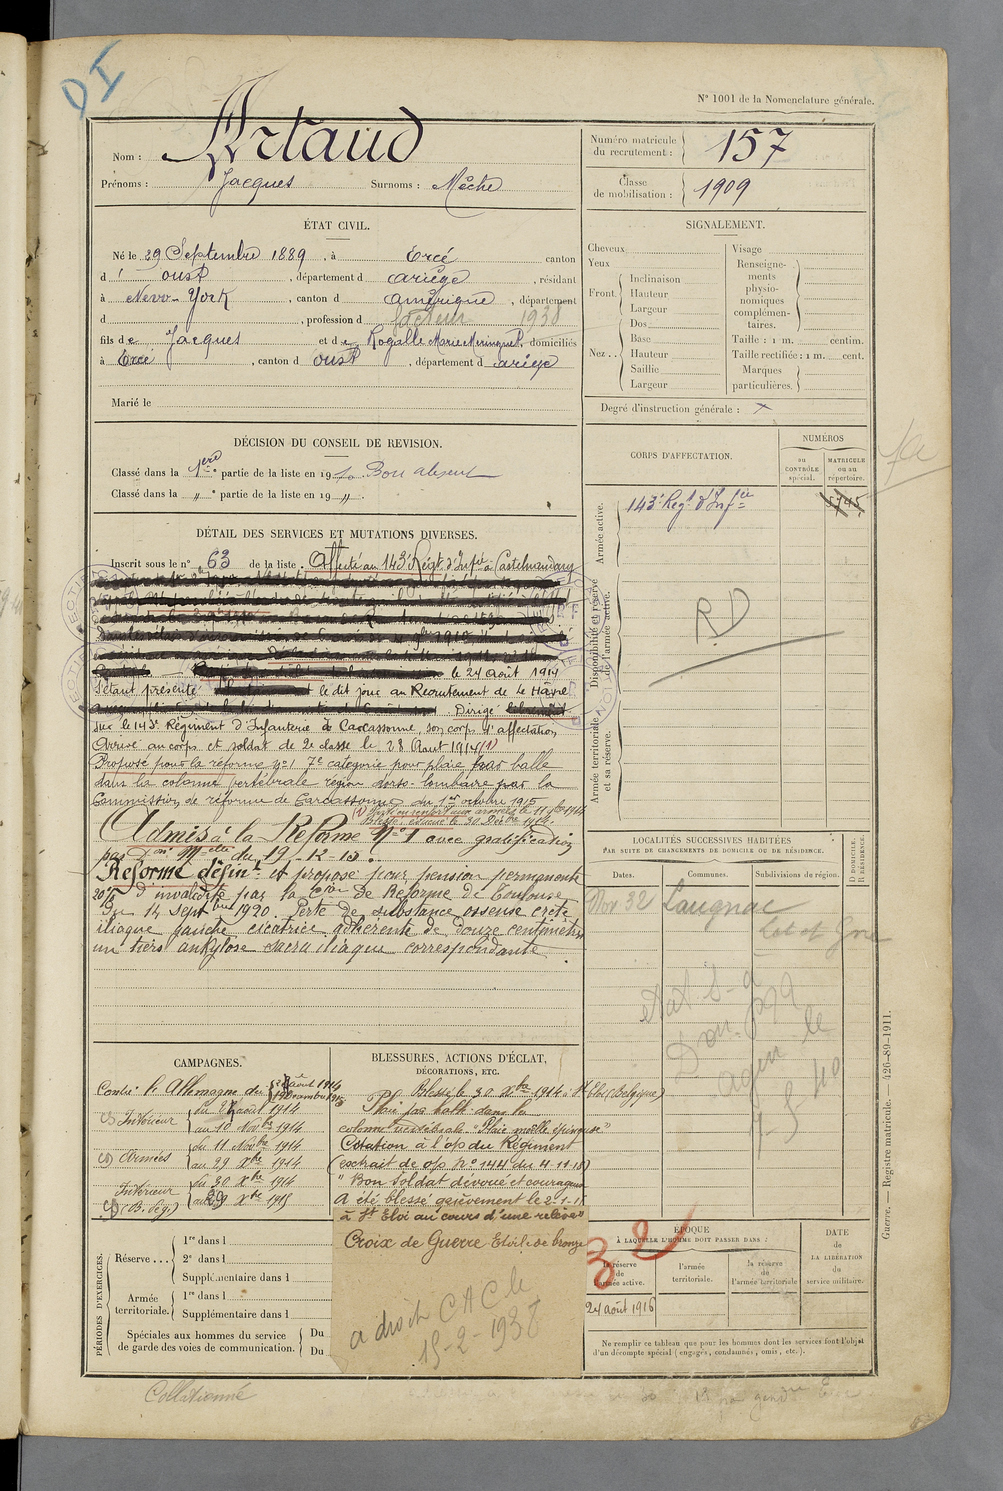 DI
N° 1001 de la Nomenclature générale.
Nom : Artaud
Prénoms : Jacques Surnoms : Mèche
Numéro matricule du recrutement : 157
Classe de mobilisation : 1909
ÉTAT CIVIL.
Né le 29 Septembre 1889, à Ercé canton
d' oust, département d ariège, résidant
à New-York, canton d amérique, département
d , profession d facteur 1938
fils de Jacques et de Rogalle Marie domiciliés
à Ercé, canton d oust, département d ariège
Marié le
SIGNALEMENT.
Cheveux
Yeux
Front. Inclinaison
Hauteur
Largeur
Nez .. Dos
Base
Hauteur
Saillie
Largeur
Visage
Renseignements physionomiques complémentaires.
Taille : 1 m. centim.
Taille rectifiée : 1 m. cent.
Marques particulières.
Degré d'instruction générale : x
DÉCISION DU CONSEIL DE REVISION.
Classé dans la 1ère partie de la liste en 1910 Bon absent
Classé dans la " ° partie de la liste en 19 " .
CORPS D'AFFECTATION.
NUMÉROS
au CONTRÔLE spécial.
MATRICULE ou au répertoire.
Armée active.
143e Regt d'Infie
Disponibilité et réserve de l'armée active.
RD
Armée territoriale et sa réserve.
DÉTAIL DES SERVICES ET MUTATIONS DIVERSES.
Inscrit sous le n° 63 de la liste. Affecté au 143e Régt d'Infie à Castelnaudary
le 24 août 1914
S'étant présenté le dit jour au Recrutement de Le Hâvre
Dirigé
sur le 143e Régiment d'Infanterie à Carcassonne, son corps d'affectation
Arrivé au corps et soldat de 2e classe le 28 Août 1914 (1)
Proposé pour la réforme n° 1 7e catégorie pour plaie par balle
dans la colonne vertébrale région dorso-lombaire par la
Commission de réforme de Carcassonne du 1er octobre 1915
(1) le 11 9bre 1914
Blessé, évacué le 30 Décbre 1914.
Admis à la Réforme N° 1 avec gratification
par Don Mtelle du 19-12-15.
Réformé défint et proposé pour pension permanente
20% d'invalidité par la Cion de Réforme de Toulouse
Du 14 Septbre 1920. Perte de substance osseuse crête
iliaque gauche cicatrice adhérente de douze centimètres
un tiers ankylose sacro iliaque correspondante.
LOCALITÉS SUCCESSIVES HABITÉES
PAR SUITE DE CHANGEMENTS DE DOMICILE OU DE RÉSIDENCE.
Dates. Communes. Subdivisions de région. D DOMICILE. R RÉSIDENCE.
Nov 32 Laugnac
Lot et Gne
agen le
7-5-40
CAMPAGNES.
Contre l'Allemagne du
Intérieur du août 1914
au 10 Novbre 1914
Armées du 11 Novbre 1914
au 29 Xbre 1914
Intérieur du 30 Xbre 1914
(B. Peg.) au 29 Xbre 1915
BLESSURES, ACTIONS D'ÉCLAT,
DÉCORATIONS, ETC.
Blessé le 30 Xbre 1914 à St Eloi (Belgique)
Plaie par balle dans la
colonne vertébrale "Plaie moëlle épinière"
Citation à l'op du Régiment
(extrait de op N° 144 du 4-11-15)
"Bon soldat dévoué et courageux
A été blessé grièvement le 2-1-15
à St Eloi au cours d'une relève"
Croix de Guerre Etoile de bronze
a droit C A C le
15-2-1938
PÉRIODES D'EXERCICES.
Réserve ... 1re dans l
2e dans l
Supplémentaire dans l
Armée territoriale. 1re dans l
Supplémentaire dans l
Spéciales aux hommes du service de garde des voies de communication. Du
Du
ÉPOQUE
À LAQUELLE L'HOMME DOIT PASSER DANS :
la réserve de l'armée active.
l'armée territoriale.
la réserve de l'armée territoriale
DATE de LA LIBÉRATION du service militaire.
24 août 1916
Ne remplir ce tableau que pour les hommes dont les services font l'objet d'un décompte spécial (engagés, condamnés, omis, etc.).
Guerre. — Registre matricule. — 426-89-1911.
Collationné